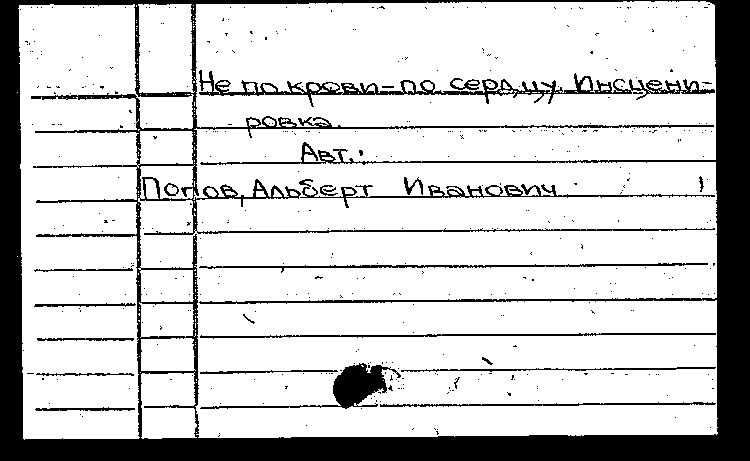 Не по крови-по сердцу. Инсцени-
ровка.
Авт.:
Попов, Альберт Иванович